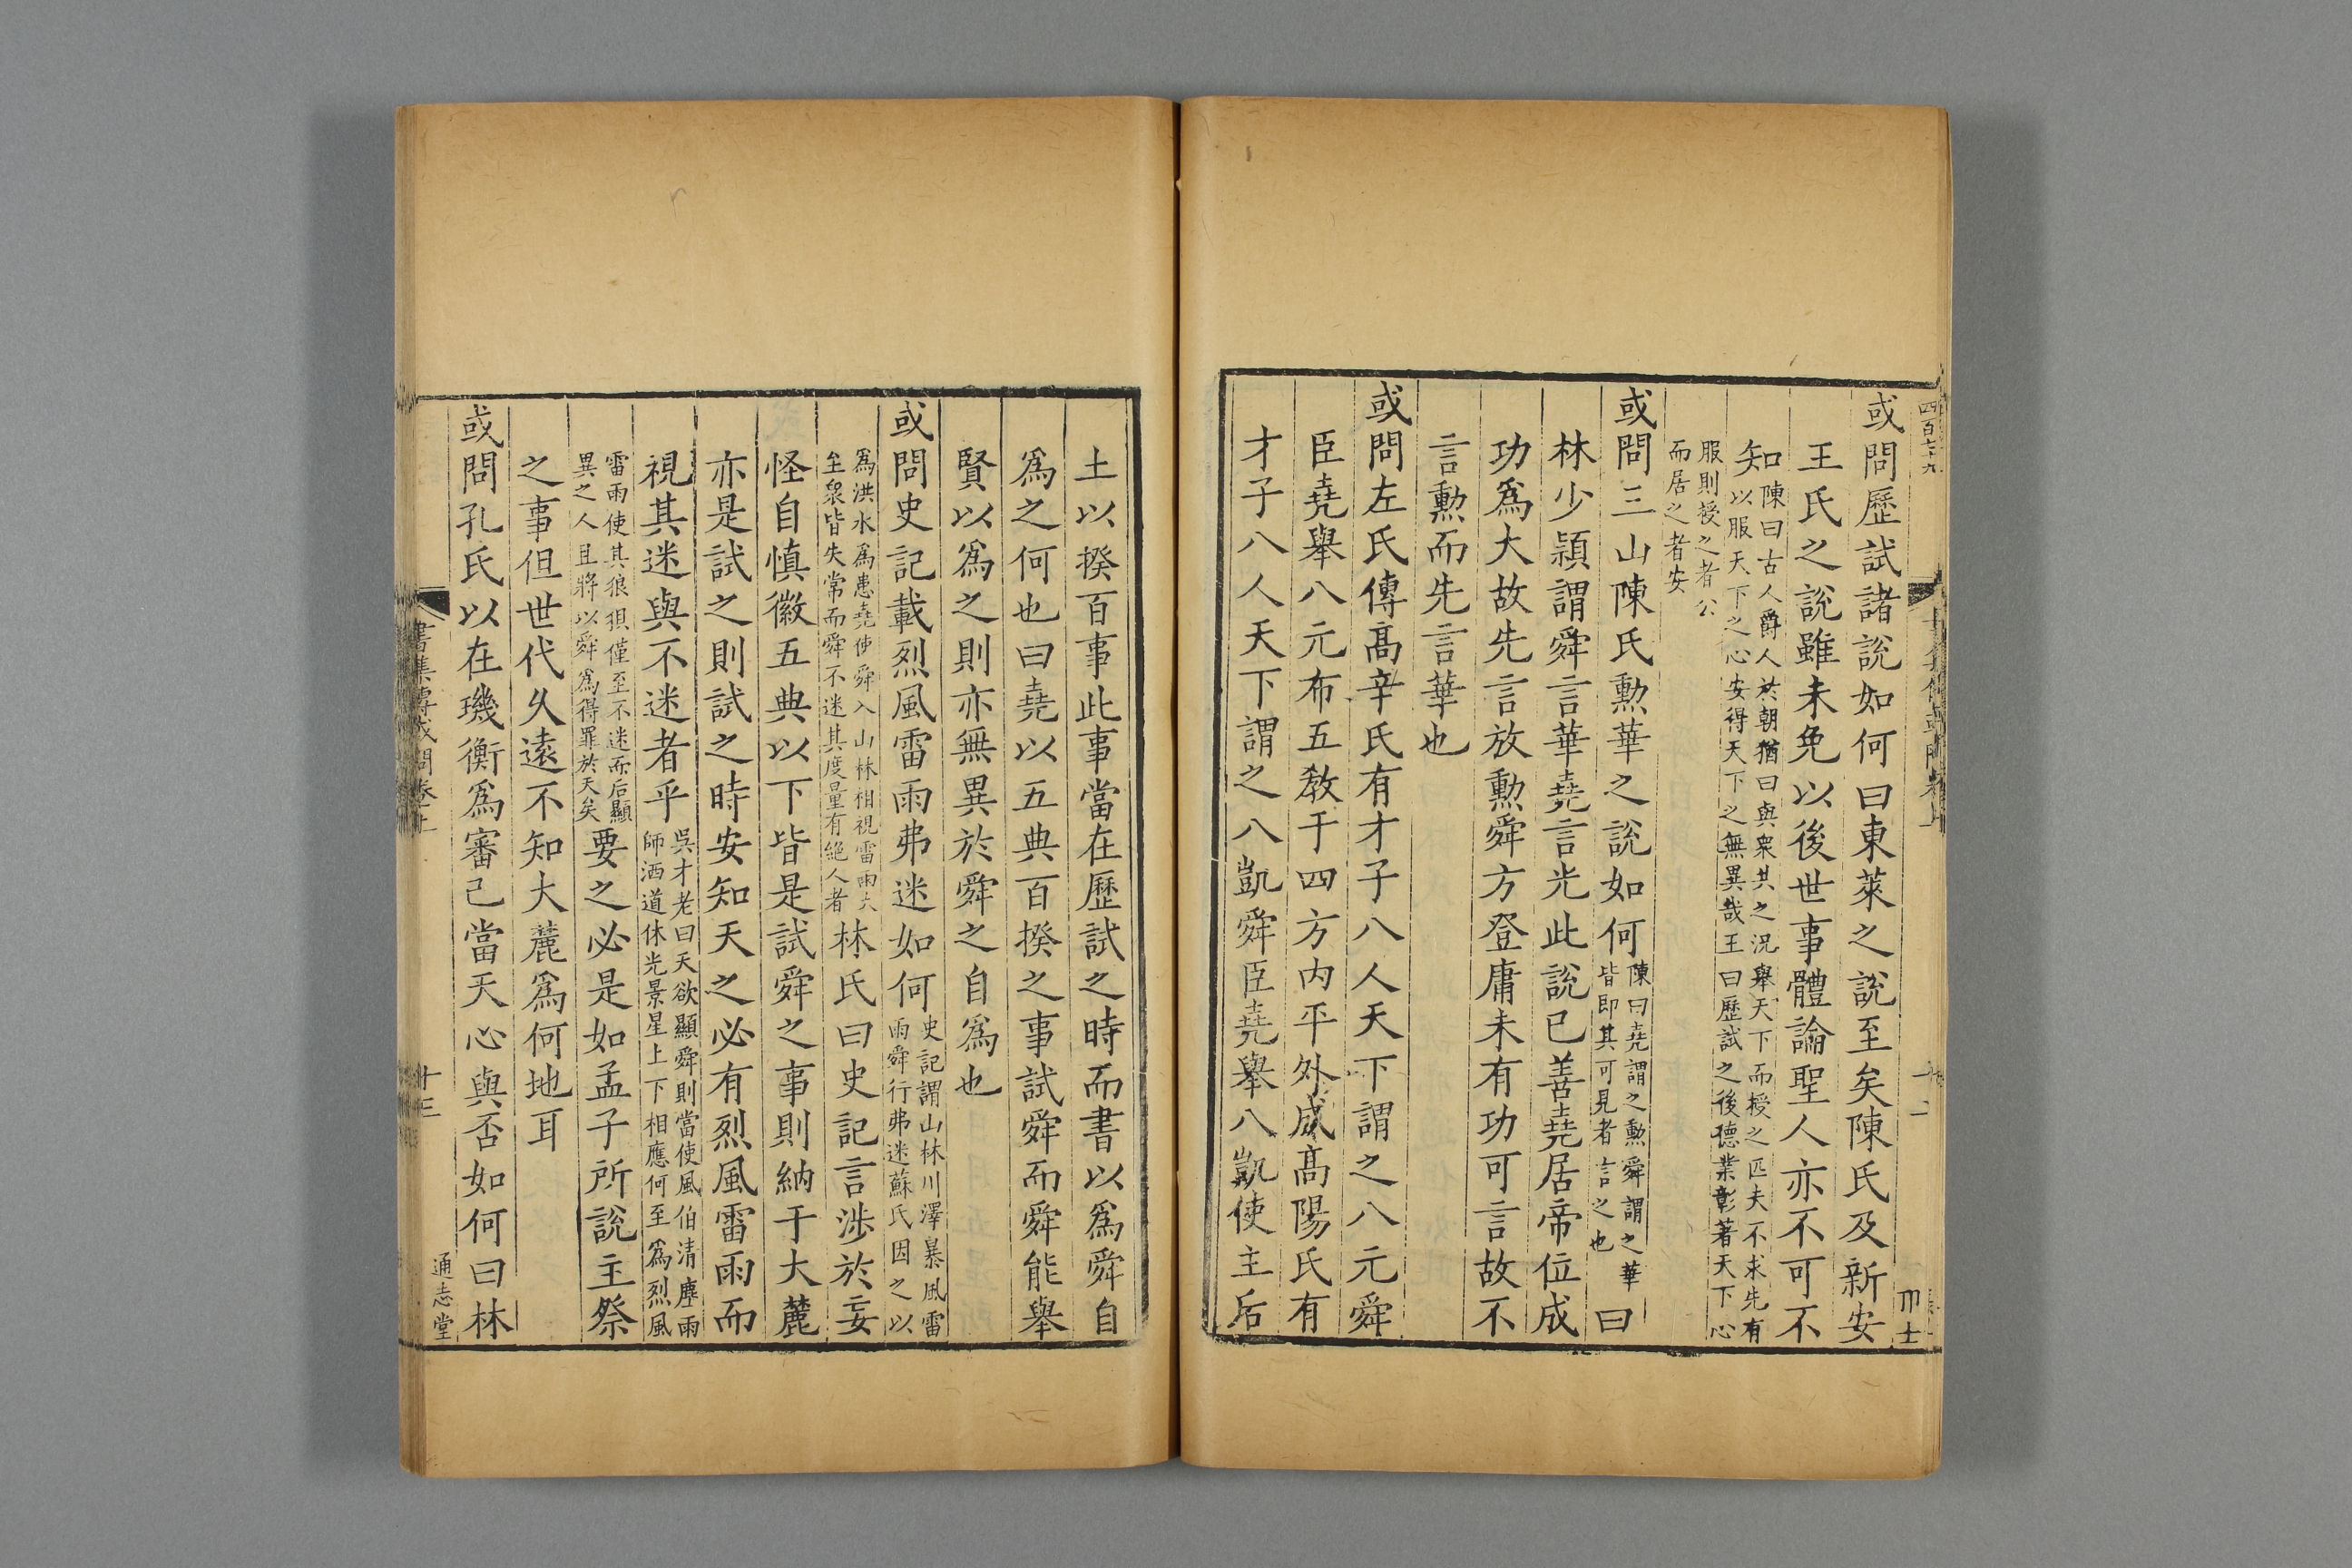 四百七十九
或問歷試諸說如何曰東萊之說至矣陳氏及新安
王氏之說雖未免以後世事體論聖人亦不可不
知陳曰古人爵人於朝猶曰與衆其之況舉天下而授之匹夫不求先有
以服天下之心安得天下之無異哉王曰歷試之後德業彰著天下心
服則授之者公
而居之者安
或問三山陳氏勲華之說如何陳曰堯謂之勲舜謂之華
皆即其可見者言之也曰
林少頴謂舜言華堯言光此說已善堯居帝位成
功爲大故先言放勲舜方登庸未有功可言故不
言勲而先言華也
或問左氏傳髙辛氏有才子八人天下謂之八元舜
臣堯舉八元布五教于四方内平外成髙陽氏有
才子八人天下謂之八凱舜臣堯舉八凱使主后
土以揆百事此事當在歷試之時而書以爲舜自
爲之何也曰堯以五典百揆之事試舜而舜能舉
賢以爲之則亦無異於舜之自爲也
或問史記載烈風雷雨弗迷如何史記謂山林川澤暴風雷
雨舜行弗迷蘇氏因之以
爲洪水爲患堯使舜入山林相視雷雨大
至衆皆失常而舜不迷其度量有絶人者林氏曰史記言渉於妄
怪自慎徽五典以下皆是試舜之事則納于大麓
亦是試之則試之時安知天之必有烈風雷雨而
視其迷與不迷者乎吳才老曰天欲顯舜則當使風伯清塵雨
師洒道休光景星上下相應何至爲烈風
雷雨使其狼狽僅至不迷而后顯
異之人且將以舜爲得罪於天矣要之必是如孟子所說主祭
之事但世代久逺不知大麓爲何地耳
或問孔氏以在璣衡爲審己當天心與否如何曰林
書集傳或問卷上
十三
通志堂